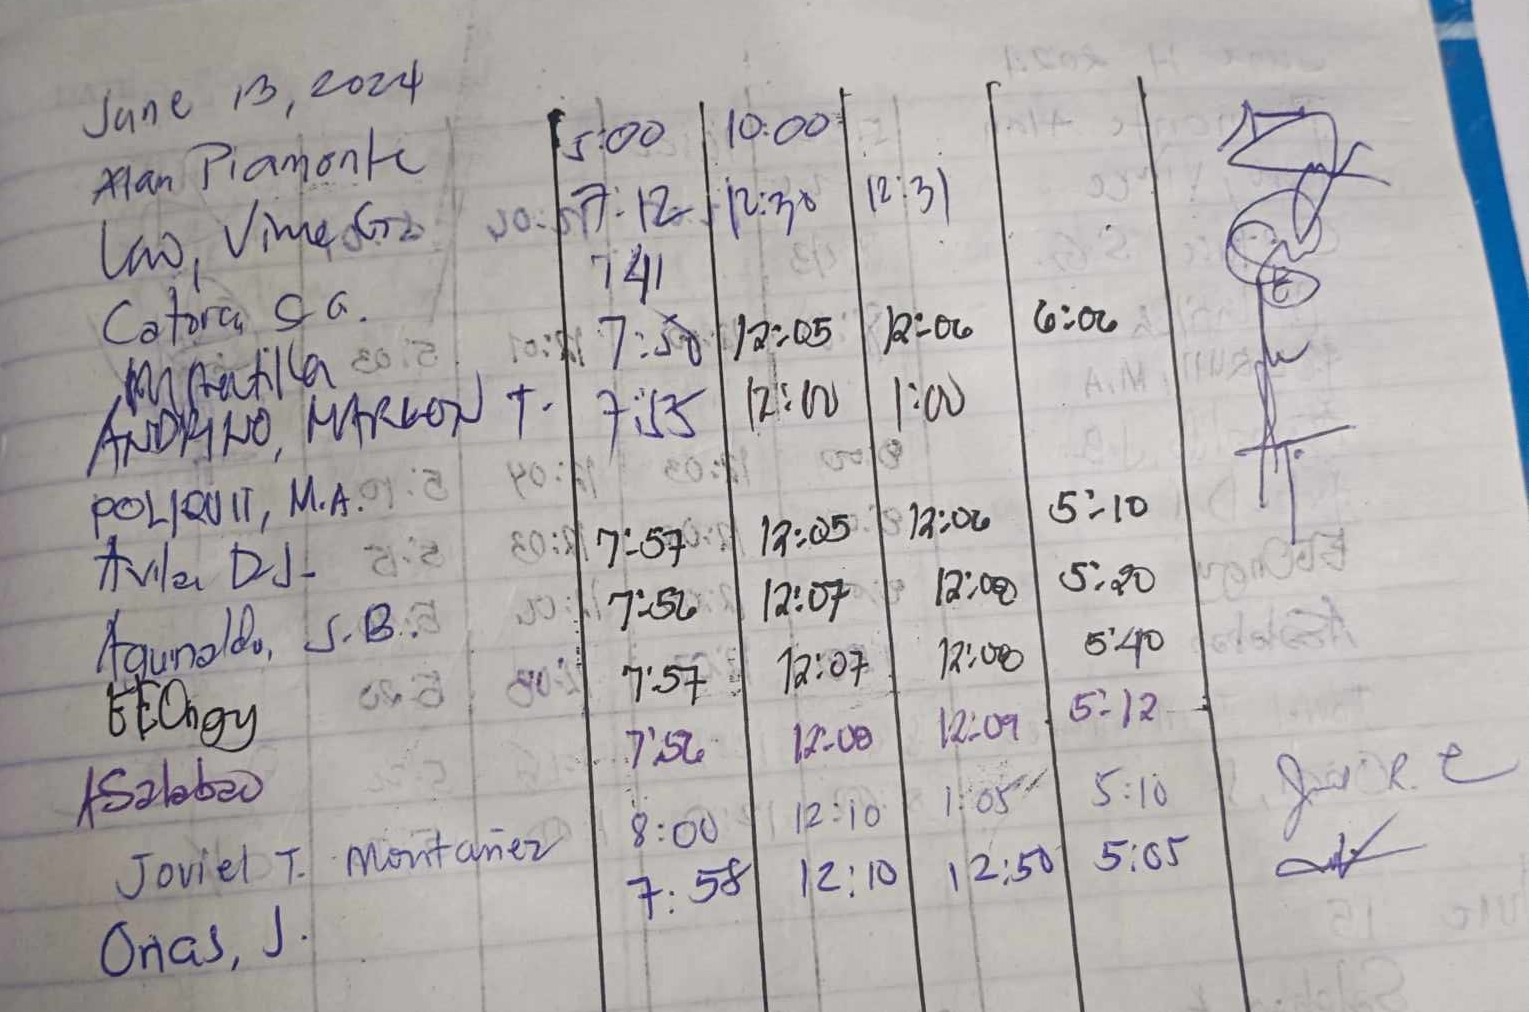 June 13, 2024
Alan Piamonte 5:00 10:00
Lao, Vince 7:12 12:30 12:31
Catora S G. 7 41
7:50 12:05 12:06 6:06
ANDRINO, MARLON T. 7:55 12:00 1:00
POLIQUIT, M.A.
Avila DJ 7:57 12:05 12:06 5:10
Aguinaldo, J.B. 7:56 12:07 12:08 5:20
EEOngy 7:57 12:07 12:08 5:40
ASalabao 7:56 12:08 12:09 5:12
Joviel T. Montañez 8:00 12:10 1:05 5:10
Onas, J. 7:58 12:10 12:50 5:05